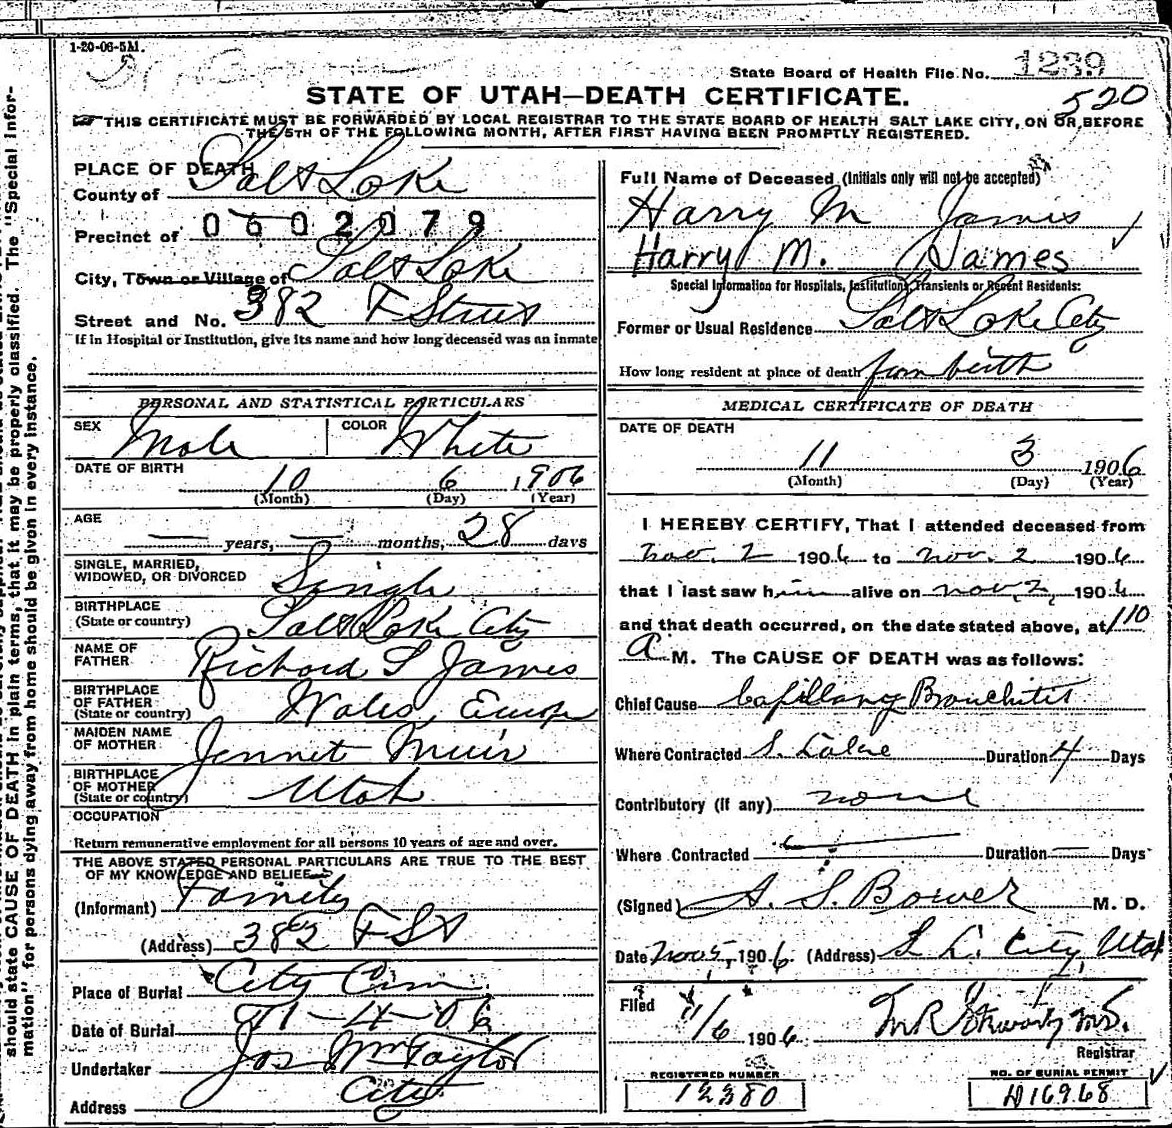 1-20-06-5M.
State Board of Health File No. 1239
520
STATE OF UTAH—DEATH CERTIFICATE.
THIS CERTIFICATE MUST BE FORWARDED BY LOCAL REGISTRAR TO THE STATE BOARD OF HEALTH SALT LAKE CITY, ON OR BEFORE
THE 5TH OF THE FOLLOWING MONTH, AFTER FIRST HAVING BEEN PROMPTLY REGISTERED.
PLACE OF DEATH
County of Salt Lake
Precinct of 0602079
City, Town or Village of Salt Lake
Street and No. 382 F Street
If in Hospital or Institution, give its name and how long deceased was an inmate
PERSONAL AND STATISTICAL PARTICULARS
SEX Male COLOR White
DATE OF BIRTH
10 6 1906
(Month) (Day) (Year)
AGE
— years, — months, 28 days
SINGLE, MARRIED,
WIDOWED, OR DIVORCED Single
BIRTHPLACE
(State or country) Salt Lake City
NAME OF
FATHER Richard S James
BIRTHPLACE
OF FATHER
(State or country) Wales, Europe
MAIDEN NAME
OF MOTHER Jennet Muir
BIRTHPLACE
OF MOTHER
(State or country) Utah
OCCUPATION
Return remunerative employment for all persons 10 years of age and over.
THE ABOVE STATED PERSONAL PARTICULARS ARE TRUE TO THE BEST
OF MY KNOWLEDGE AND BELIEF
(Informant) Family
(Address) 382 F St
Place of Burial City Cem.
Date of Burial 11-4-06
Undertaker Jos Wm Taylor
Address City
Full Name of Deceased (Initials only will not be accepted)
Harry M James
Harry M. James
Special Information for Hospitals, Institutions, Transients or Recent Residents:
Former or Usual Residence Salt Lake City
How long resident at place of death from birth
MEDICAL CERTIFICATE OF DEATH
DATE OF DEATH
11 3 1906
(Month) (Day) (Year)
I HEREBY CERTIFY, That I attended deceased from
Nov. 2 1906 to Nov. 2 1906
that I last saw him alive on Nov. 2, 1906
and that death occurred, on the date stated above, at 110
A M. The CAUSE OF DEATH was as follows:
Chief Cause Capillary Bronchitis
Where Contracted S. Lake Duration 4 Days
Contributory (if any) none
Where Contracted Duration — Days
(Signed) A. S. Bower M. D.
Date Nov 5, 1906. (Address) S L. City, Utah
Filed 11/6 1906
Registrar
REGISTERED NUMBER
12380
NO. OF BURIAL PERMIT
D16968
should state CAUSE OF DEATH in plain terms, that it may be properly classified. The "Special Infor-
mation" for persons dying away from home should be given in every instance.